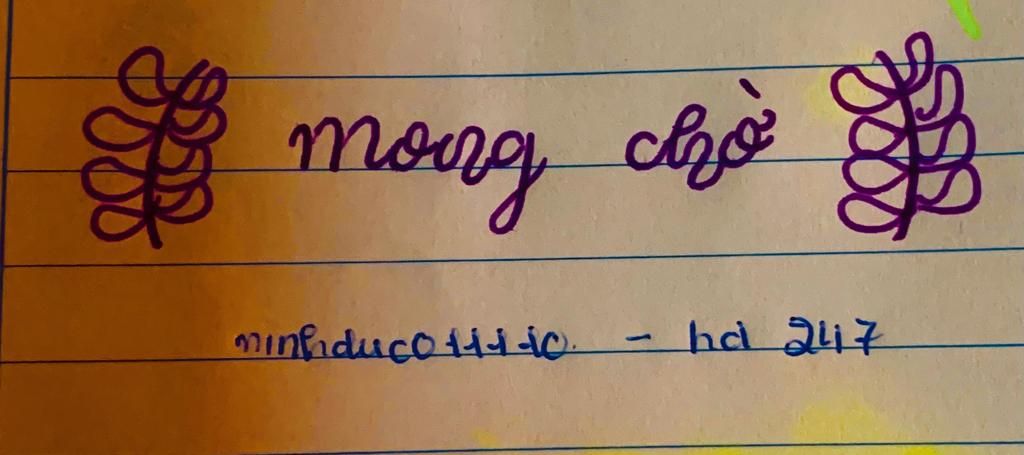 mong chờ
minhduc011110. - hd 247